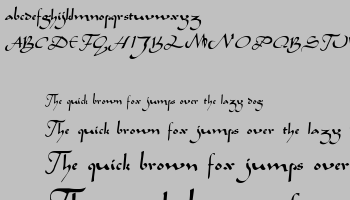 abcdefghijklmnopqrstuvwxyz
ABCDEFGHIJKLMNOPQRSTU
The quick brown fox jumps over the lazy dog
The quick brown fox jumps over the lazy
The quick brown fox jumps over